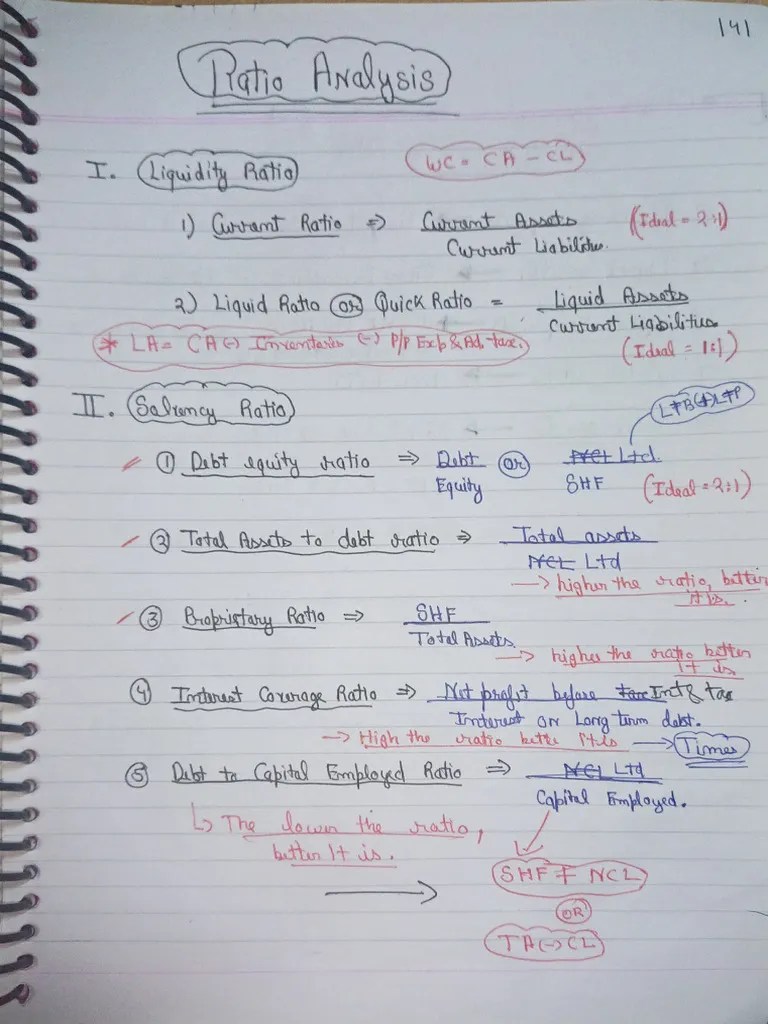 141
Ratio Analysis
I. Liquidity Ratio WC = CA - CL
1) Current Ratio ⇒ Current Assets (Ideal = 2:1)
Current Liabilities.
2) Liquid Ratio OR Quick Ratio = Liquid Assets
Current Liabilities
* LA = CA (-) Inventories (-) P/P Exp & Ad. tax. (Ideal = 1:1)
II. Solvency Ratio
① Debt equity ratio ⇒ Debt OR NCL Ltd.
Equity SHF (Ideal = 2:1)
② Total Assets to debt ratio ⇒ Total assets
NCL Ltd
→ higher the ratio, better
it is.
③ Propriatary Ratio ⇒ SHF
Total Assets.
→ higher the ratio better
It is
④ Interest Coverage Ratio ⇒ Net profit before tax Int & tax
Interest on Long term debt.
→ High the ratio bette It is → Times
⑤ Debt to Capital Employed Ratio ⇒ NCL Ltd
Capital Employed.
↳ The lower the ratio,
better It is.
SHF + NCL
OR
TA (-) CL